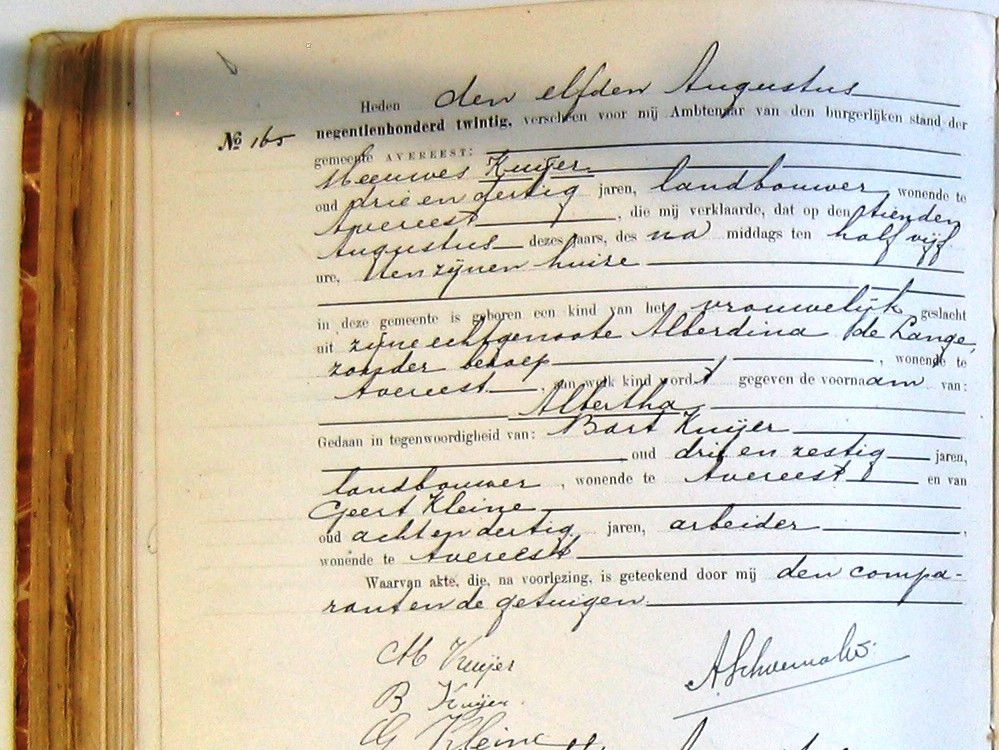 Heden den elfden Augustus
№ 165 negentienhonderd twintig, verscheen voor mij Ambtenaar van den burgerlijken stand der
gemeente AVEREEST:
Meeuwes Kuijer
oud drie en dertig jaren, landbouwer, wonende te
Avereest, die mij verklaarde, dat op den tienden
Augustus dezes jaars, des na middags ten half vijf
ure, ten zijnen huize
in deze gemeente is geboren een kind van het vrouwelijk geslacht
uit zijne echtgenoote Alberdina de Lange,
zonder beroep, wonende te
Avereest, aan welk kind wordt gegeven de voornaam van:
Albertha
Gedaan in tegenwoordigheid van: Bart Kuijer
oud drie en zestig jaren,
landbouwer, wonende te Avereest en van
Geert Kleine
oud acht en dertig jaren, arbeider,
wonende te Avereest
Waarvan akte, die, na voorlezing, is geteekend door mij den compa-
rant en de getuigen.
M Kuijer
B Kuijer
G Kleine
Augustus